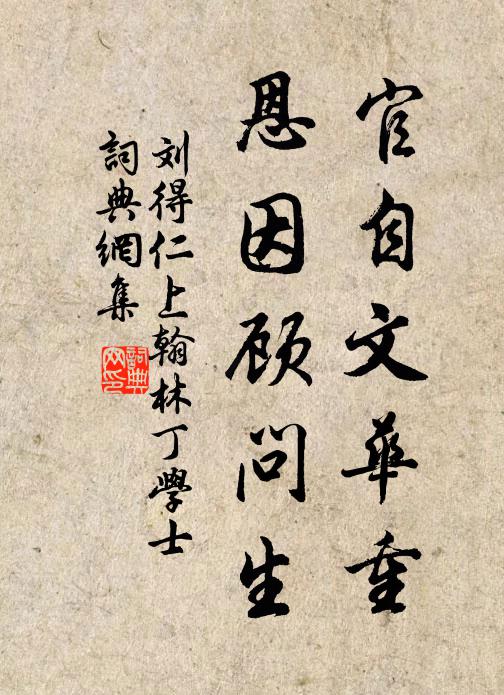 官自文華重
恩因顧问生
刘得仁上翰林丁學士
詞典網集
詞典
网印